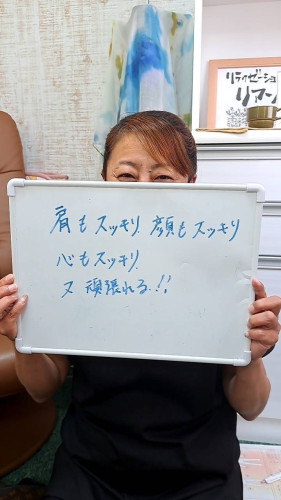 リライゼーショ
リアン
肩もスッキリ.顔もスッキリ
心もスッキリ.
又頑張れる.!!